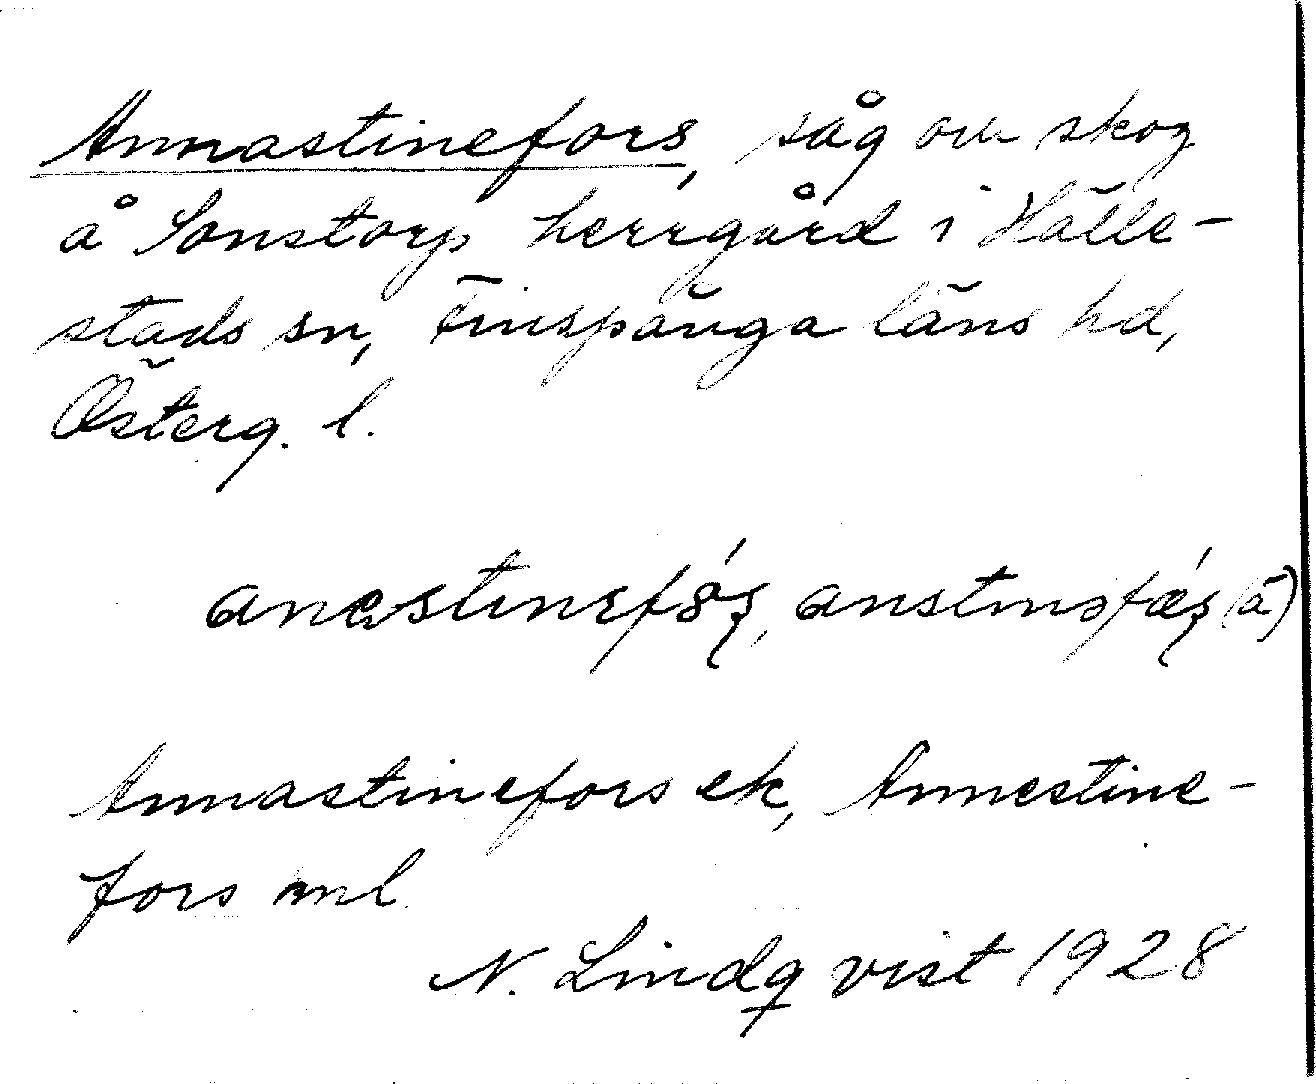 Annastinefors, såg och skog
å Sonstorps herrgård i Hälle-
stads sn, Finspånga läns hd,
Österg. l.
Annastinefors ek, Annestine-
fors ml
N. Lindqvist 1928